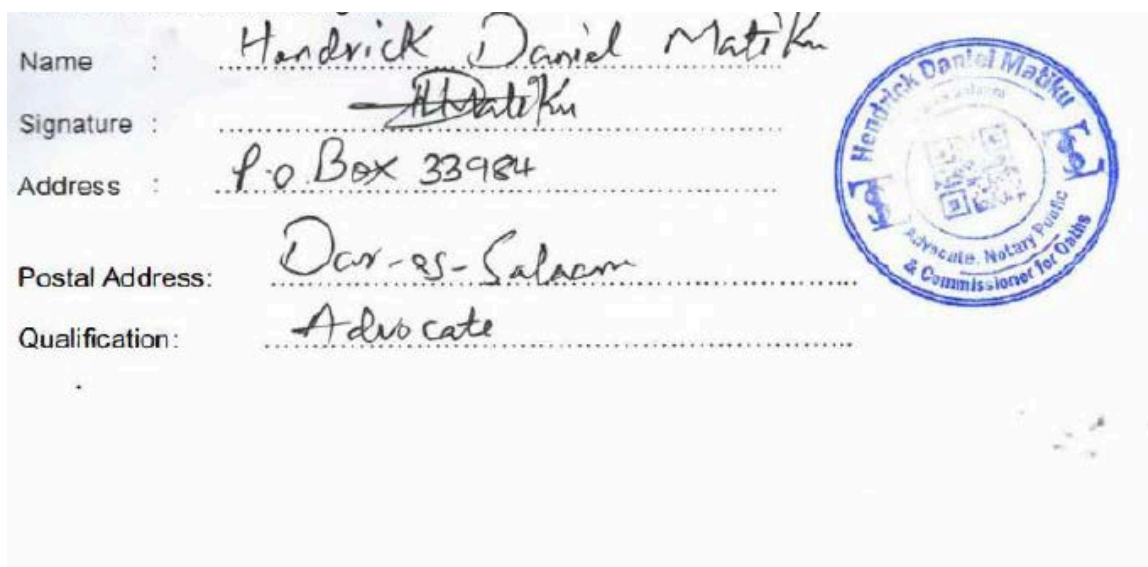 Name : Hendrick Daniel Matiku
Signature : HMatiku
Address : P.O Box 33984
Postal Address: Dar-es-Salaam
Qualification: Advocate
Hendrick Daniel Matiku
Advocate, Notary Public
& Commissioner for Oaths